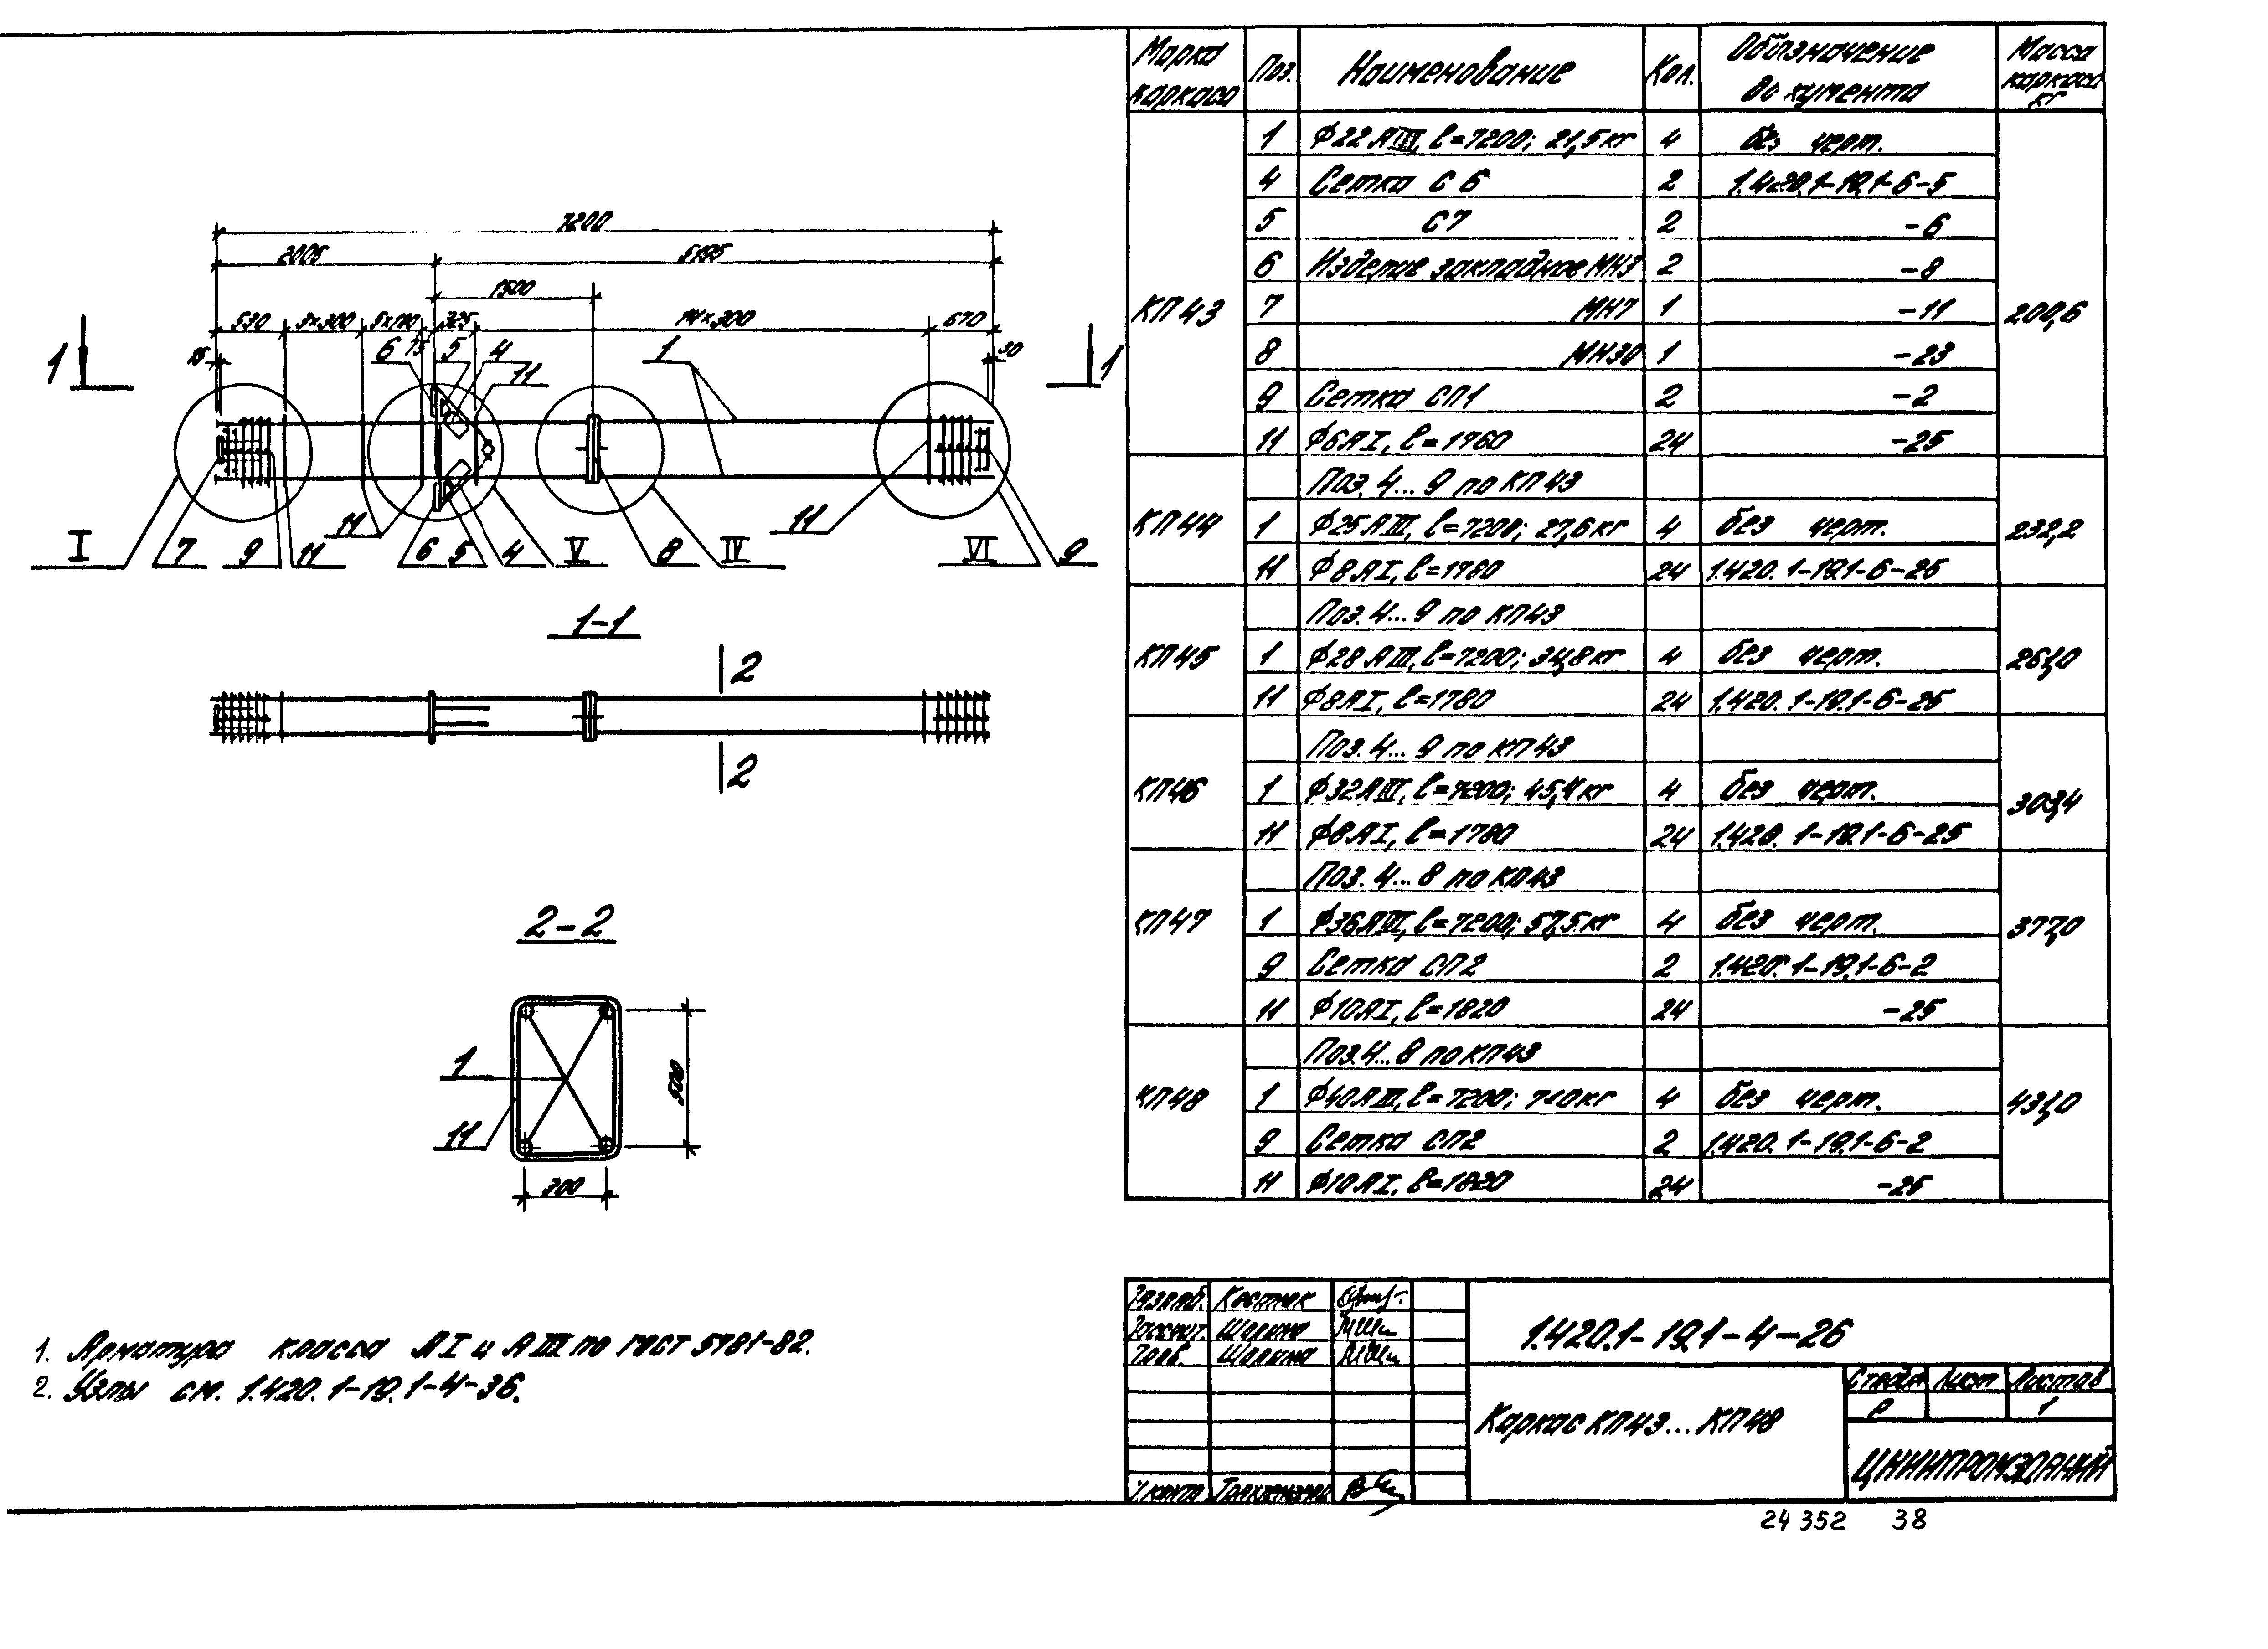 7200
2005 5195
1500
530 3×300 5×100 325 14×300 670
15 75 30
6 5 4 11 1
1 1
11 11
I 7 9 11 6 5 4 V 8 IV VI 9
1-1
2
2
2-2
1
11
500
300
1. Арматура класса АI и АIII по ГОСТ 5781-82.
2. Узлы см. 1.420.1-19.1-4-36.
Марка каркаса Поз. Наименование Кол. Обозначение документа Масса каркаса кг
КП43 200,6
1 ϕ22АIII, l=7200; 21,5кг 4 без черт.
4 Сетка С6 2 1.420.1-19.1-6-5
5 С7 2 -6
6 Изделие закладное МН3 2 -8
7 МН7 1 -11
8 МН30 1 -23
9 Сетка СП1 2 -2
11 ϕ6АI, l=1760 24 -25
КП44 232,2
Поз. 4...9 по КП43
1 ϕ25АIII, l=7200; 27,6кг 4 без черт.
11 ϕ8АI, l=1780 24 1.420.1-19.1-6-25
КП45 261,0
Поз. 4...9 по КП43
1 ϕ28АIII, l=7200; 34,8кг 4 без черт.
11 ϕ8АI, l=1780 24 1.420.1-19.1-6-25
КП46 303,4
Поз. 4...9 по КП43
1 ϕ32АIII, l=7200; 45,4кг 4 без черт.
11 ϕ8АI, l=1780 24 1.420.1-19.1-6-25
КП47 377,0
Поз. 4...8 по КП43
1 ϕ36АIII, l=7200; 57,5кг 4 без черт.
9 Сетка СП2 2 1.420.1-19.1-6-2
11 ϕ10АI, l=1820 24 -25
КП48 431,0
Поз. 4...8 по КП43
1 ϕ40АIII, l=7200; 71,0кг 4 без черт.
9 Сетка СП2 2 1.420.1-19.1-6-2
11 ϕ10АI, l=1820 24 -25
Разраб. Костюк
Шалына
Шалына
Н.контр.
1.420.1-19.1-4-26
Каркас КП43...КП48
Стадия Лист Листов
Р 1
ЦНИИПРОМЗДАНИЙ
24352 38